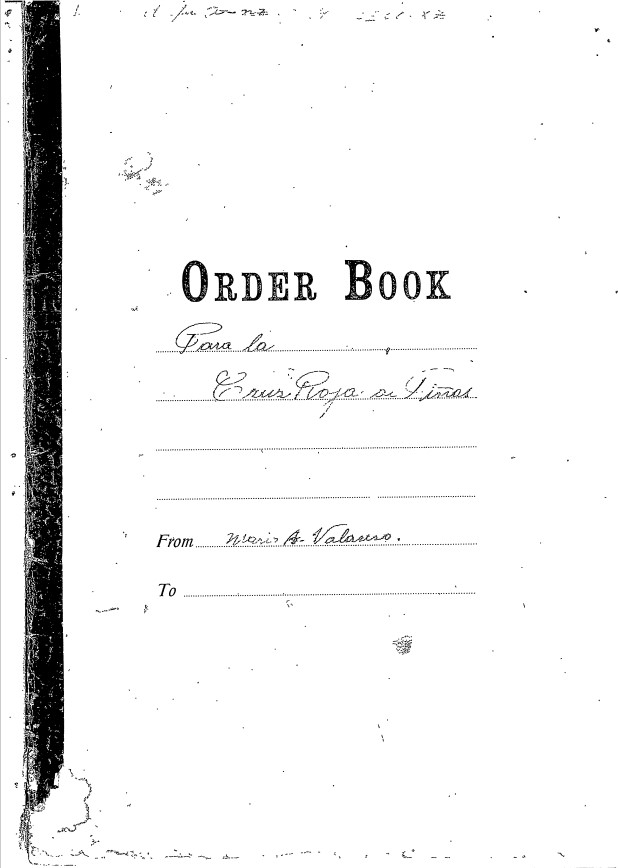 ORDER BOOK
Para la
Cruz Roja
From Mario A. Valaruso.
To